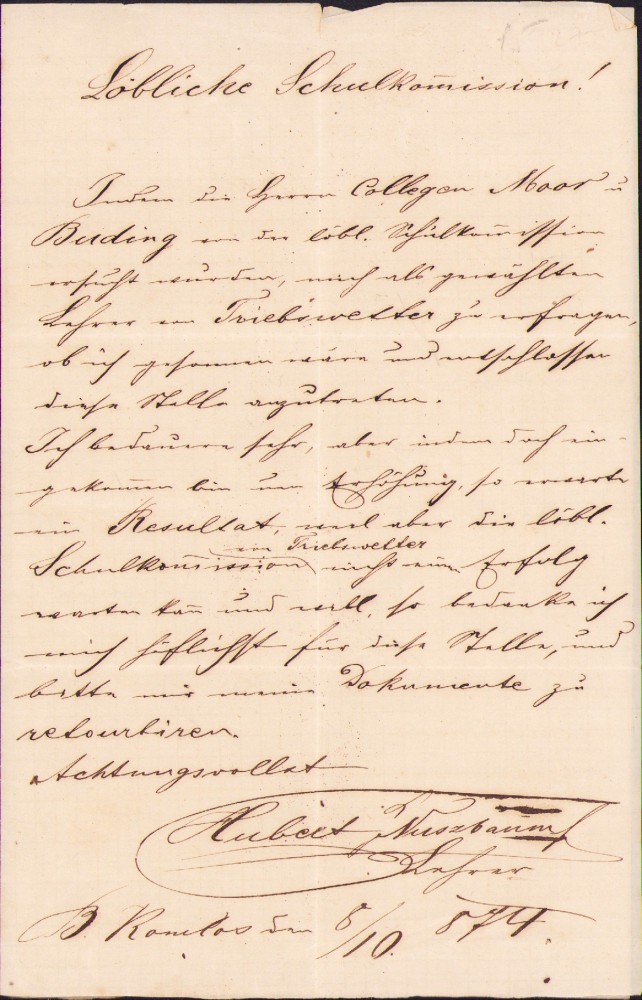 Löbliche Schulkom̄ission!
Indem die Herrn Collegen Moor u
Buding von der löbl. Schulkom̄ission
ersucht wurden, mich als gewählten
Lehrer von Triebswetter zu erfragen,
ob ich gesonnen wäre und entschlossen
diese Stelle anzutreten.
Ich bedauere sehr, aber indem doch ein-
gekom̄en bin um Erhöhung, so erwarte
ein Resultat, weil aber die löbl.
von Triebswetter
Schulkom̄ission nicht einen Erfolg
warten kan̄ und will, so bedanke ich
mich höflichst für diese Stelle, und
bitte mir meine Dokumente zu
retourbiren.
Achtungsvollst
Hubert Nuszbaum
Lehrer
B. Komlos den 8/10. 874.